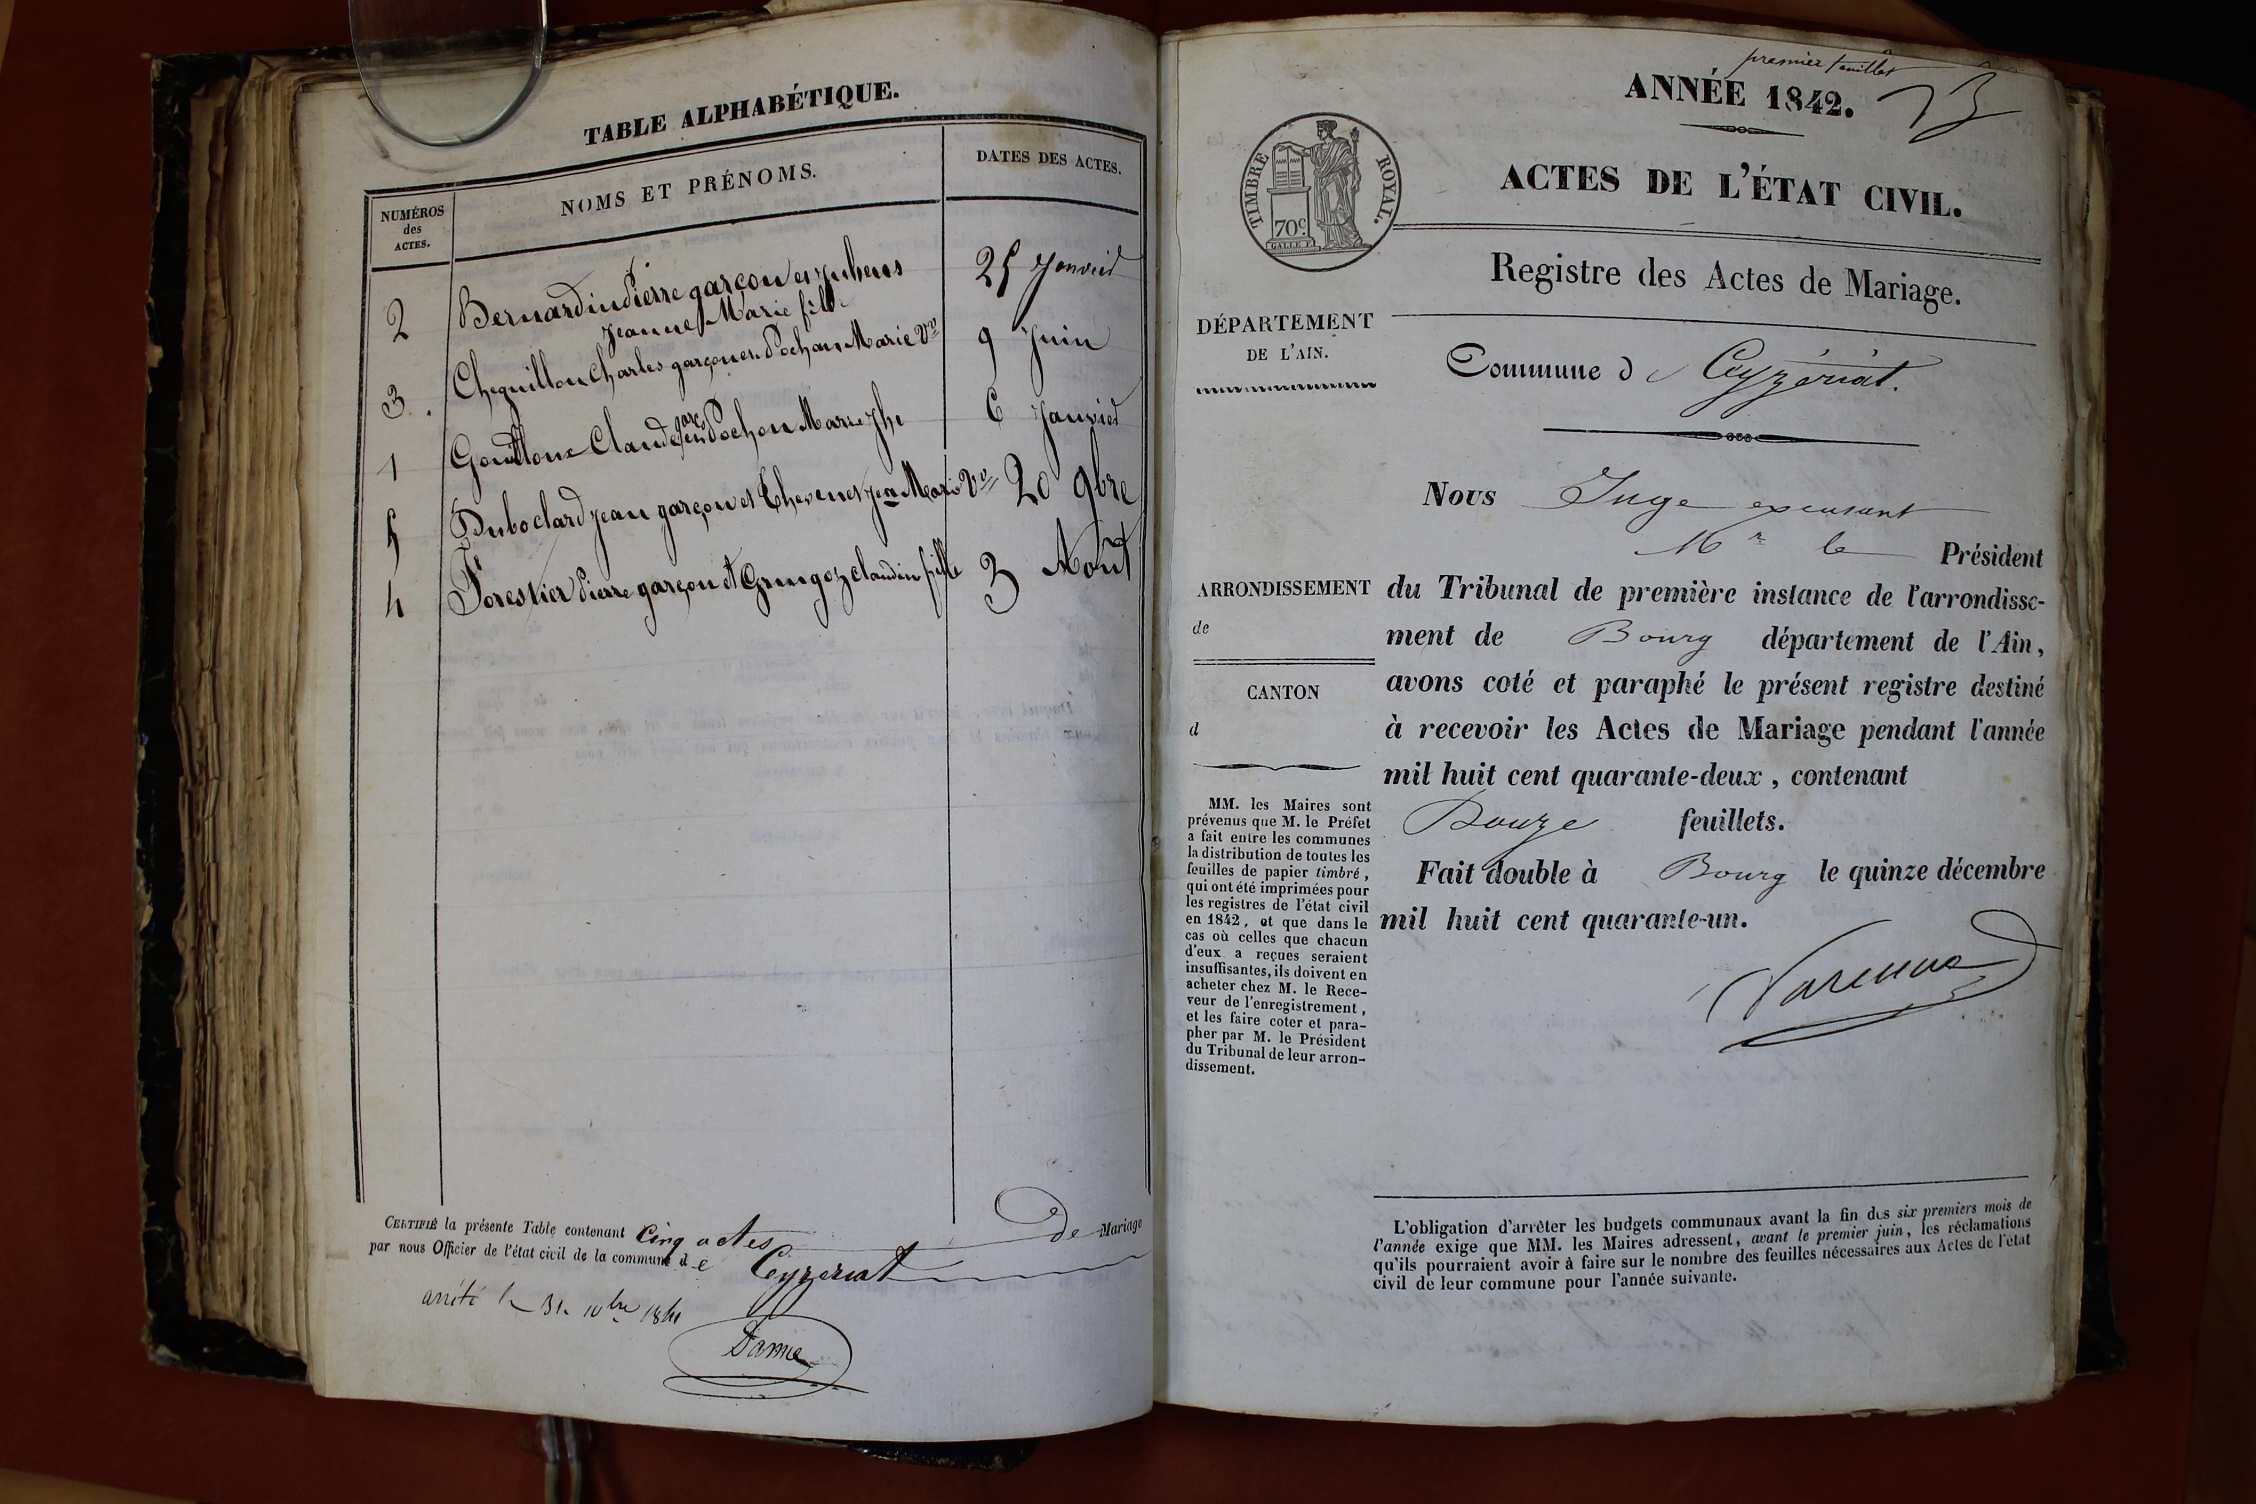 TABLE ALPHABÉTIQUE.
NUMÉROS
des
ACTES.
NOMS ET PRÉNOMS.
DATES DES ACTES.
2 Bernardin Pierre garçon et Juhens 25 Janvier
Jeanne Marie fille
3. Chequillon Charles garçon et Pochon Marie Vve 9 Juin
1 Claude garç et Pochon Marie Jhe 6 Janvier
5 Duboclard Jean garçon et Thevenet Jea Marie Vve 20 9bre
4 Forestier Pierre garçon et Claudin fille 3 Aout
CERTIFIÉ la présente Table contenant Cinq actes De Mariage
par nous Officier de l'état civil de la commune de Ceyzeriat
arrêté le 31 10bre 1841
premier feuillet
ANNÉE 1842.
TIMBRE ROYAL.
70c.
GALLE F.
ACTES DE L'ÉTAT CIVIL.
Registre des Actes de Mariage.
DÉPARTEMENT
DE L'AIN.
Commune de Ceyzériat.
Nous Juge excusant
Mr le Président
ARRONDISSEMENT
de
CANTON
d
du Tribunal de première instance de l'arrondisse-
ment de Bourg département de l'Ain,
avons coté et paraphé le présent registre destiné
à recevoir les Actes de Mariage pendant l'année
mil huit cent quarante-deux, contenant
Douze feuillets.
Fait double à Bourg le quinze décembre
mil huit cent quarante-un.
Varenne
MM. les Maires sont
prévenus que M. le Préfet
a fait entre les communes
la distribution de toutes les
feuilles de papier timbré,
qui ont été imprimées pour
les registres de l'état civil
en 1842, et que dans le
cas où celles que chacun
d'eux a reçues seraient
insuffisantes, ils doivent en
acheter chez M. le Rece-
veur de l'enregistrement,
et les faire coter et para-
pher par M. le Président
du Tribunal de leur arron-
dissement.
L'obligation d'arrêter les budgets communaux avant la fin des six premiers mois de
l'année exige que MM. les Maires adressent, avant le premier juin, les réclamations
qu'ils pourraient avoir à faire sur le nombre des feuilles nécessaires aux Actes de l'état
civil de leur commune pour l'année suivante.